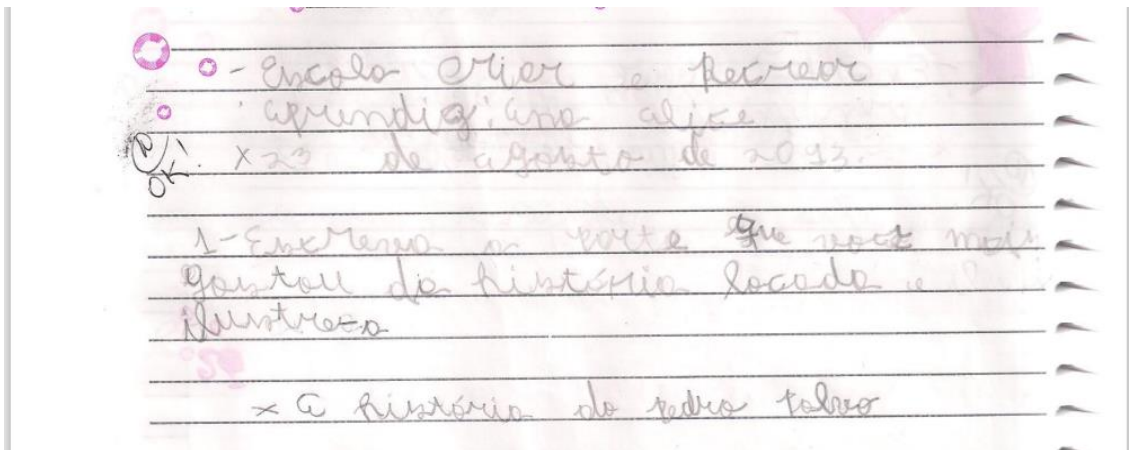 - Escola Criar e Recrear
aprendiz: ana alice
OK! x 23 de agosto de 2013.
1- Escreva a parte que você mais
gostou da história locada e
ilustre-a
x a história do pedro